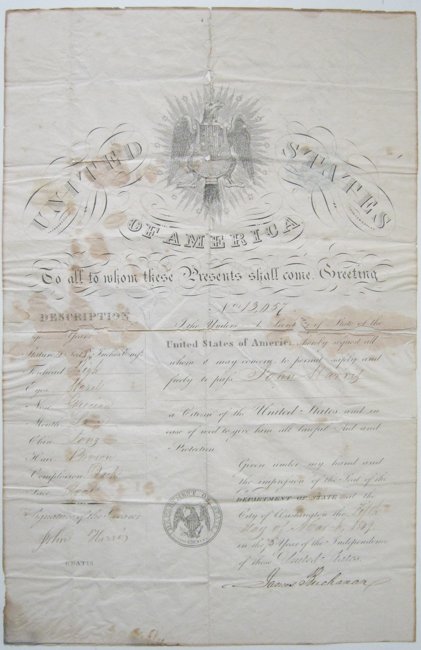 UNITED STATES
OF AMERICA
To all to whom these Presents shall come. Greeting
No 13,057
DESCRIPTION
Age Years
Stature Feet Inches Eng.
Forehead High
Eyes Hazel
Nose Grecian
Mouth
Chin Long
Hair Brown
Complexion Dark
Face
Signature of the Bearer
John
GRATIS
I the Undersigned Secretary of State of the
United States of America, hereby request all
whom it may concern to permit safely and
freely to pass John
a Citizen of the United States and in
case of need to give him all lawful Aid and
Protection.
Given under my hand and
the impression of the Seal of the
DEPARTMENT OF STATE at the
City of Washington the
day of
in the Year of the Independence
of these United States.
James Buchanan
DEPARTMENT OF STATE